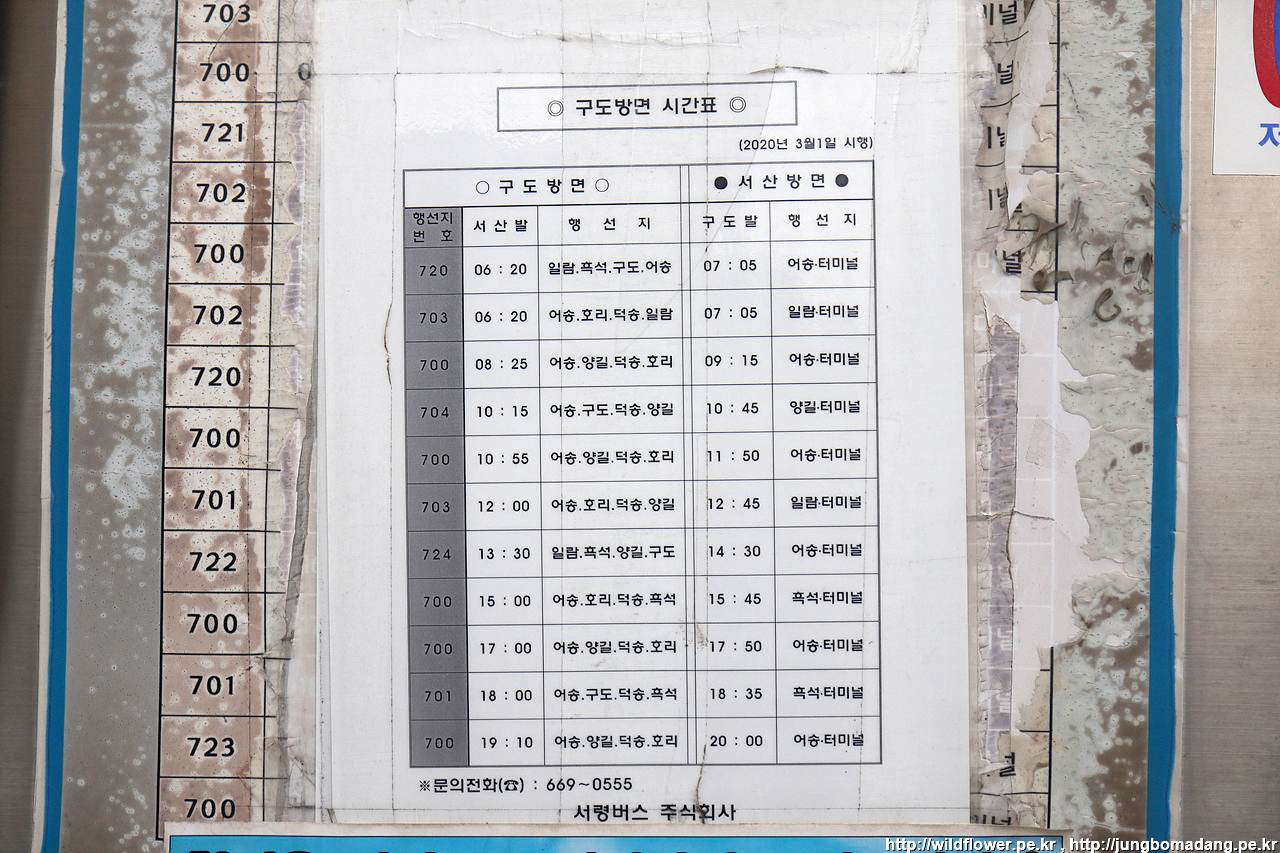 703
700
721
702
700
702
720
700
701
722
700
701
723
700
◎ 구도방면 시간표 ◎
(2020년 3월1일 시행)
○ 구 도 방 면 ○ ● 서 산 방 면 ●
행선지 번 호 서 산 발 행 선 지 구 도 발 행 선 지
720 06 : 20 일람.흑석.구도.어송 07 : 05 어송·터미널
703 06 : 20 어송.호리.덕송.일람 07 : 05 일람·터미널
700 08 : 25 어송.양길.덕송.호리 09 : 15 어송·터미널
704 10 : 15 어송.구도.덕송.양길 10 : 45 양길·터미널
700 10 : 55 어송.양길.덕송.호리 11 : 50 어송·터미널
703 12 : 00 어송.호리.덕송.양길 12 : 45 일람·터미널
724 13 : 30 일람.흑석.양길.구도 14 : 30 어송·터미널
700 15 : 00 어송.호리.덕송.흑석 15 : 45 흑석·터미널
700 17 : 00 어송.양길.덕송.호리 17 : 50 어송·터미널
701 18 : 00 어송.구도.덕송.흑석 18 : 35 흑석·터미널
700 19 : 10 어송.양길.덕송.호리 20 : 00 어송·터미널
※문의전화(☎) : 669~0555
서령버스 주식회사
http://wildflower.pe.kr , http://jungbomadang.pe.kr